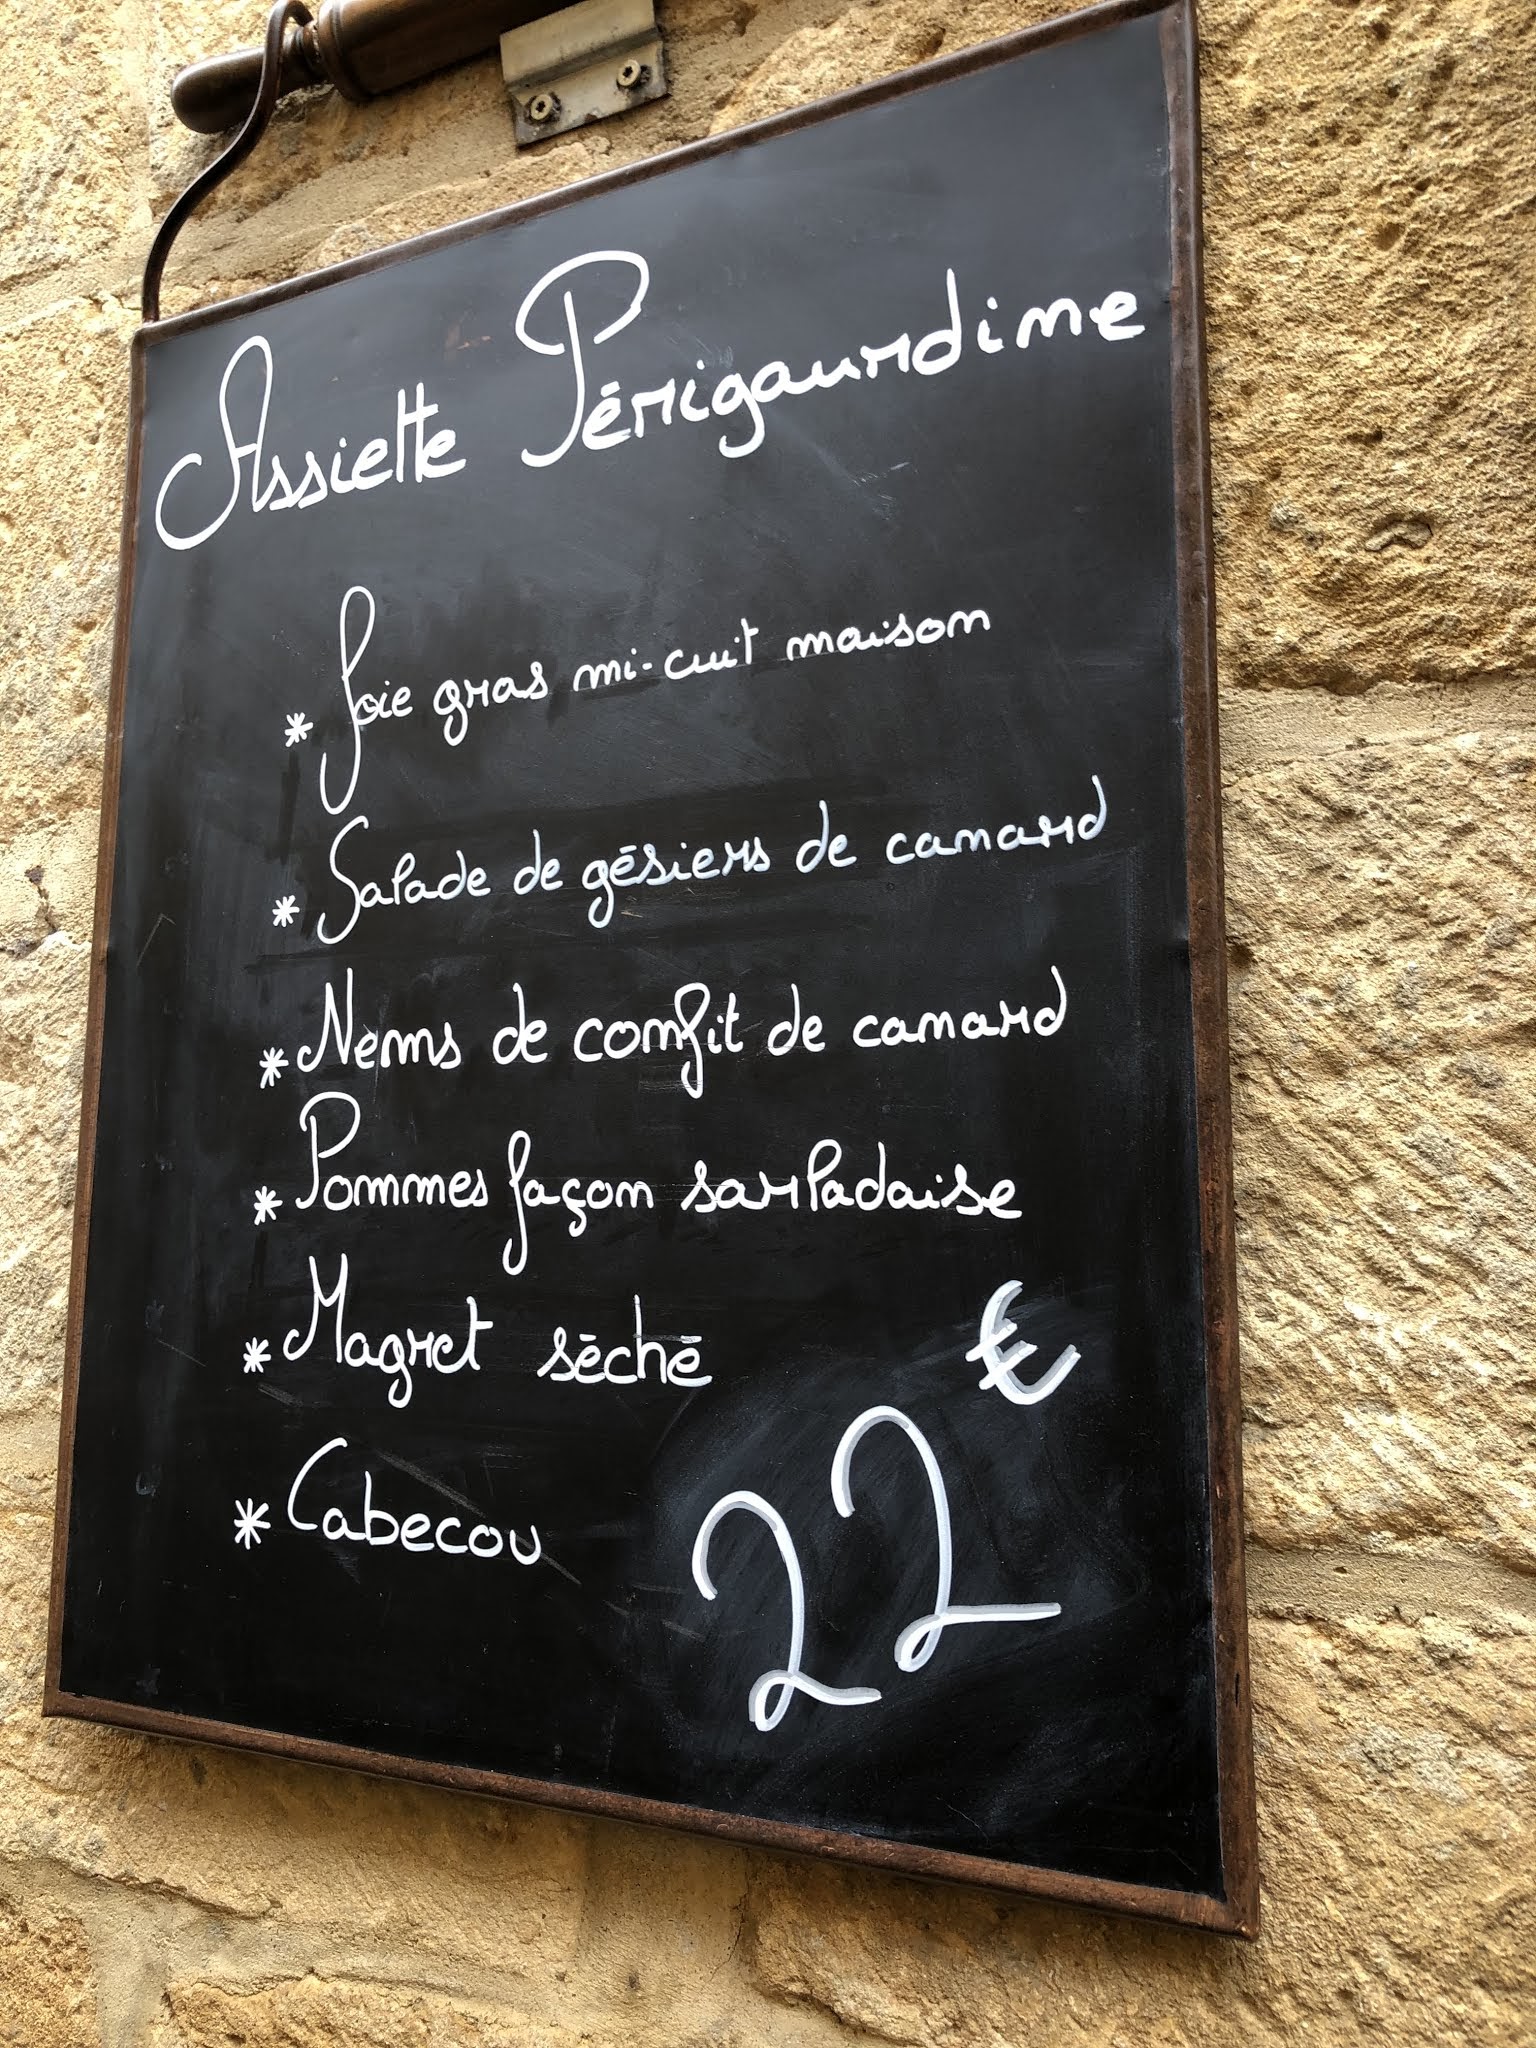 Assiette Périgourdine
* foie gras mi-cuit maison
* Salade de gésiers de canard
* Nems de confit de canard
* Pommes façon sarladaise
* Magret séché
* Cabecou
22 €